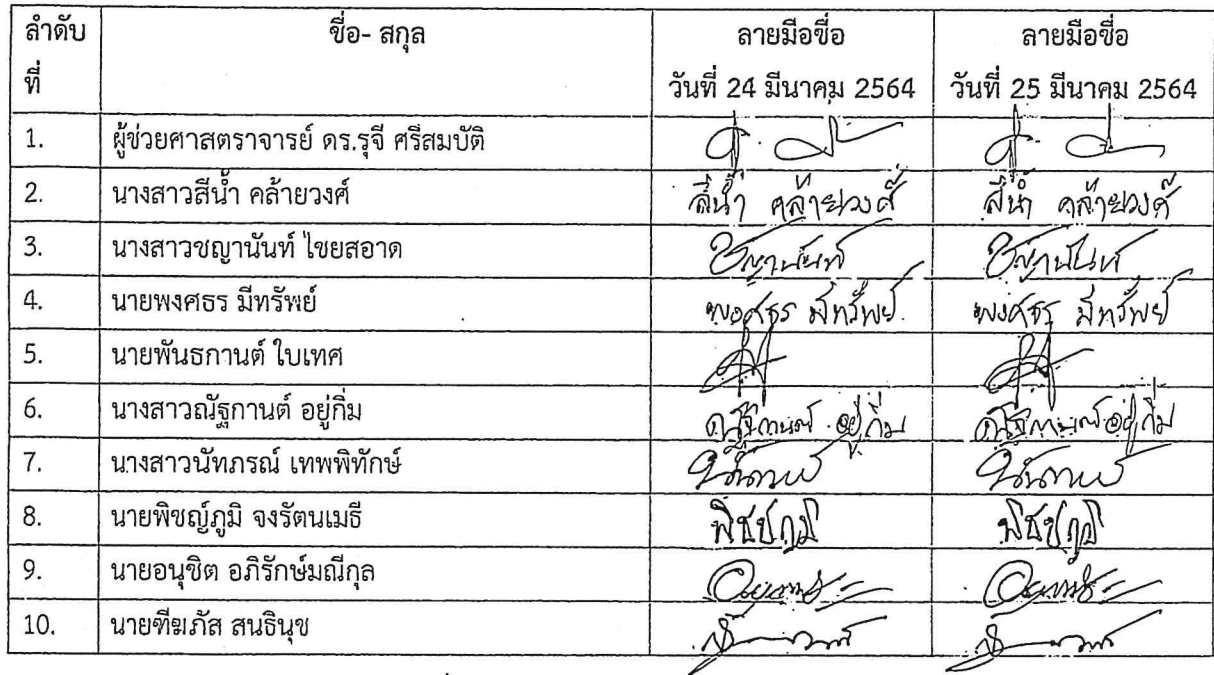 ลำดับ ชื่อ- สกุล ลายมือชื่อ ลายมือชื่อ
ที่ วันที่ 24 มีนาคม 2564 วันที่ 25 มีนาคม 2564
1. ผู้ช่วยศาสตราจารย์ ดร.รุจี ศรีสมบัติ
2. นางสาวสีน้ำ คล้ายวงศ์ สีน้ำ คล้ายวงศ์ สีน้ำ คล้ายวงศ์
3. นางสาวชญานันท์ ไชยสอาด ชญานันท์ ชญานันท์
4. นายพงศธร มีทรัพย์ พงศธร มีทรัพย์ พงศธร มีทรัพย์
5. นายพันธกานต์ ใบเทศ
6. นางสาวณัฐกานต์ อยู่กิ่ม ณัฐกานต์ อยู่กิ่ม ณัฐกานต์ อยู่กิ่ม
7. นางสาวนัทภรณ์ เทพพิทักษ์
8. นายพิชญ์ภูมิ จงรัตนเมธี
9. นายอนุชิต อภิรักษ์มณีกุล
10. นายฑีฆภัส สนธินุช